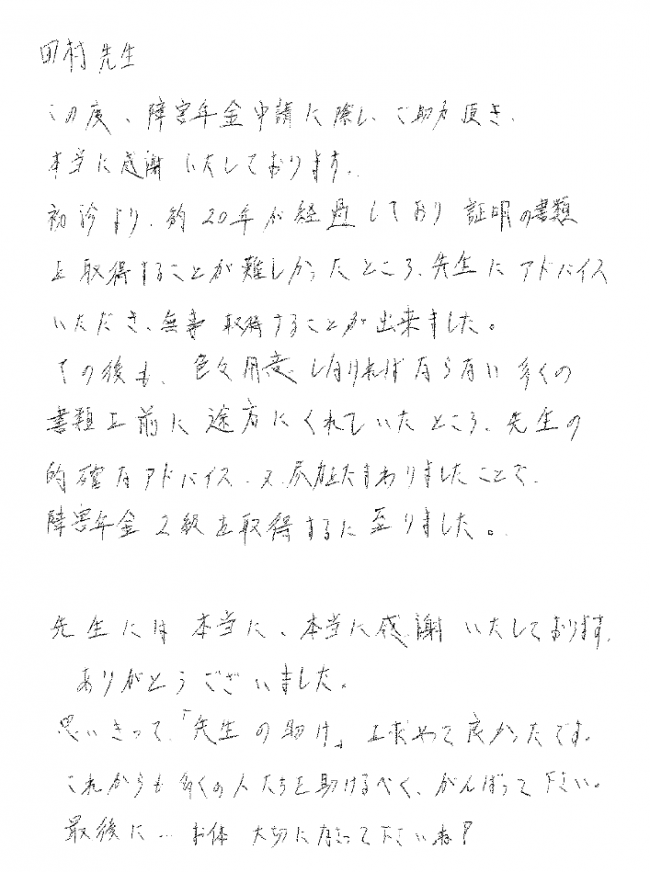 田村先生
この度、障害年金申請に際し、ご助力頂き、
本当に感謝いたしております。
初診より、約20年が経過しており 証明の書類
を取得することが難しかったところ、先生にアドバイス
いただき、無事 取得することが出来ました。
その後も、色々用意しなければならない多くの
書類を前に途方にくれていたところ、先生の
的確なアドバイス、又、尽力たまわりましたことで、
障害年金2級を取得するに至りました。
先生には本当に、本当に感謝いたしております。
ありがとうございました。
思いきって、「先生の助け」を求めて良かったです。
これからも多くの人たちを助けるべく、がんばって下さい。
最後に…お体 大切になさって下さいね?